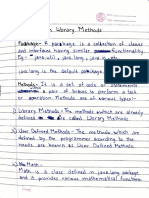 Library Methods
Package - A package is a collection of classes
and interfaces having similar functionality.
Eg - java.util, java.lang etc.
java.lang is the default package.
Methods - It is a set of code or statements
Methods are of various types:-
1) Library Methods - The methods which are already
defined are called Library Methods
2) User Defined Methods - The methods which are
programmed by the user according to their requirements
are known as User Defined Methods.
Math
Math is a class defined in java.lang package
and it provides various mathematical function.